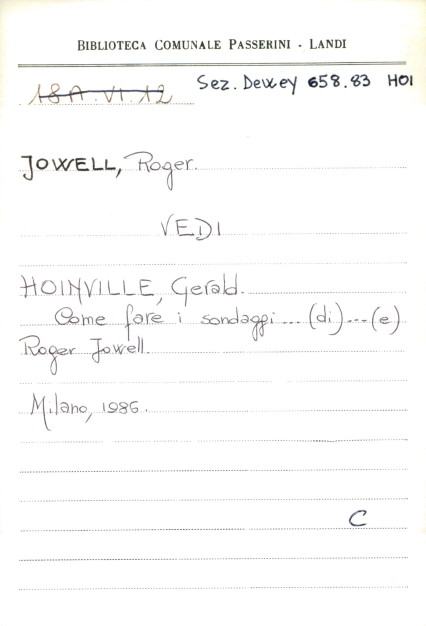 BIBLIOTECA COMUNALE PASSERINI - LANDI
18A.VI.12 Sez. Dewey 658.83 HOI
JOWELL, Roger.
VEDI
HOINVILLE, Gerald.
Come fare i sondaggi...(di)...(e)
Roger Jowell.
Milano, 1986.
C